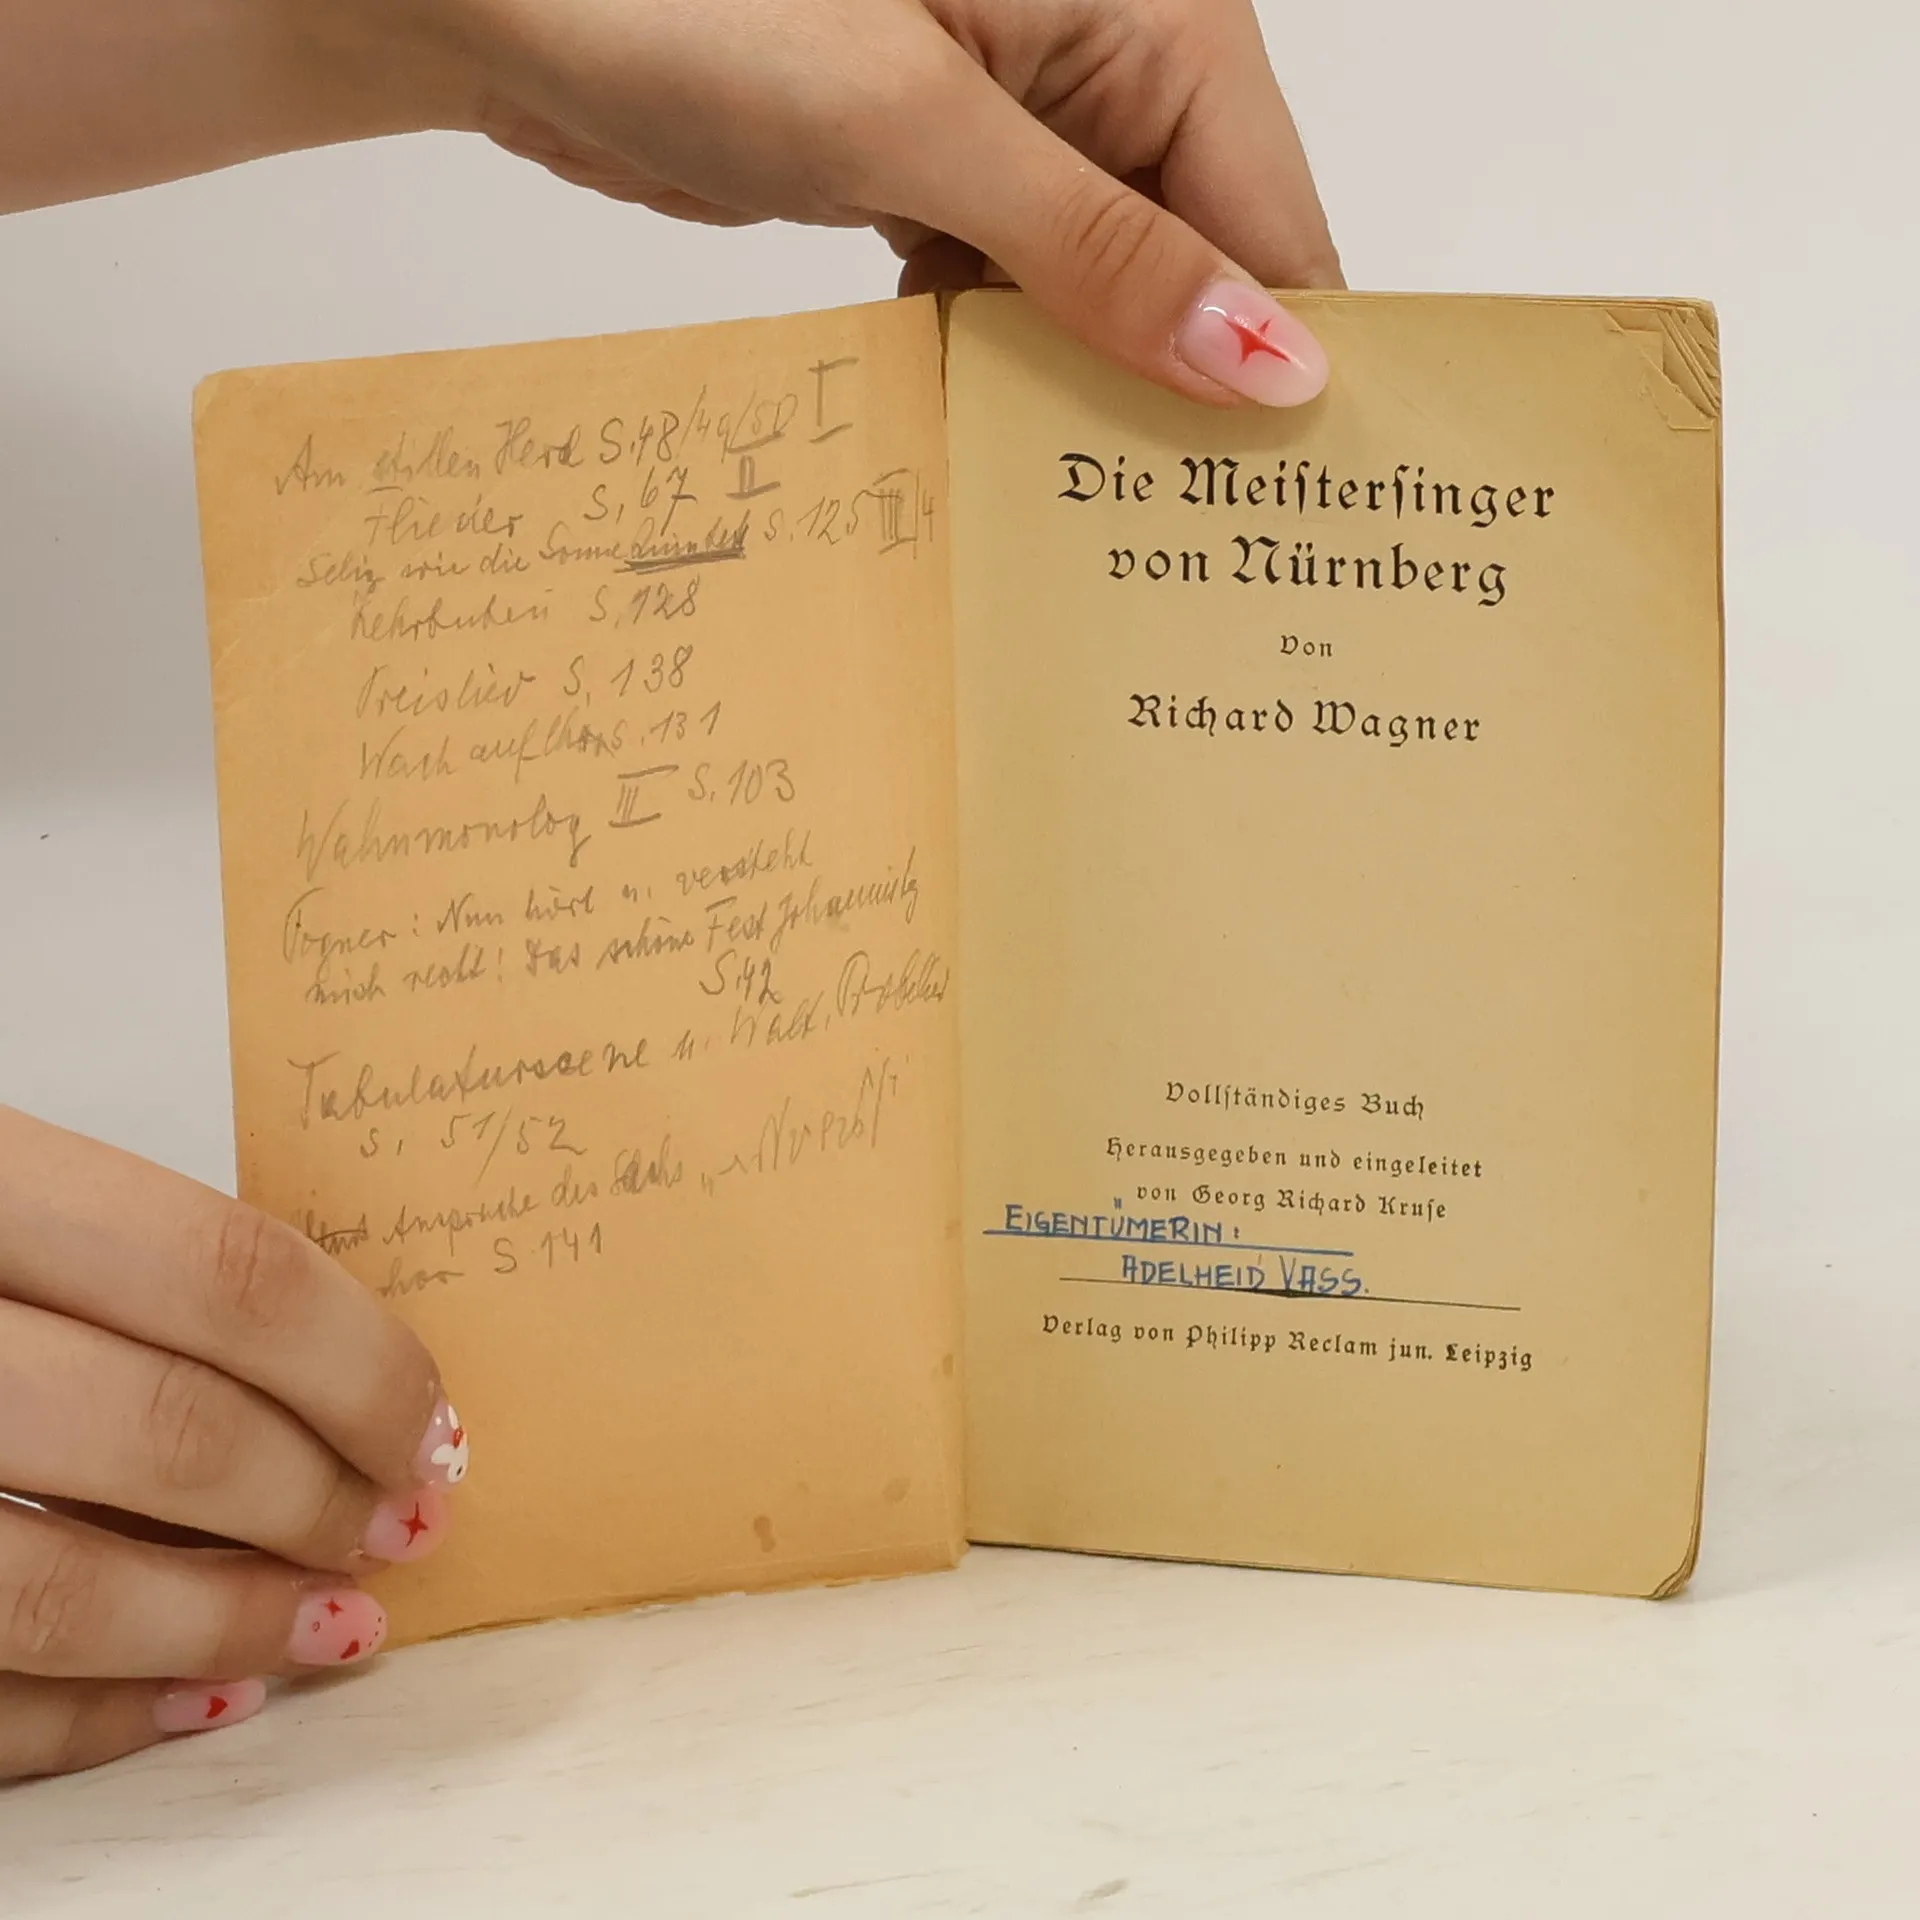 Am stillen Herd S.48/49/50 I
Flieder S. 67 II
Selig wie die Sonne Quintett S. 125 III/4
Lehrbuben S. 128
Preislied S. 138
Wach auf Chor S. 131
Wahnmonolog III S. 103
Pogner: Nun hört u. versteht
mich recht! Das schöne Fest Johannistg
S.42
Tabulaturscene u. Walt.
S. 51/52
Ansprache des Sachs
chor S 141
Die Meiſterſinger
von Nürnberg
Von
Richard Wagner
Vollſtändiges Buch
Herausgegeben und eingeleitet
von Georg Richard Kruſe
EIGENTÜMERIN:
ADELHEID VASS.
Verlag von Philipp Reclam jun. Leipzig